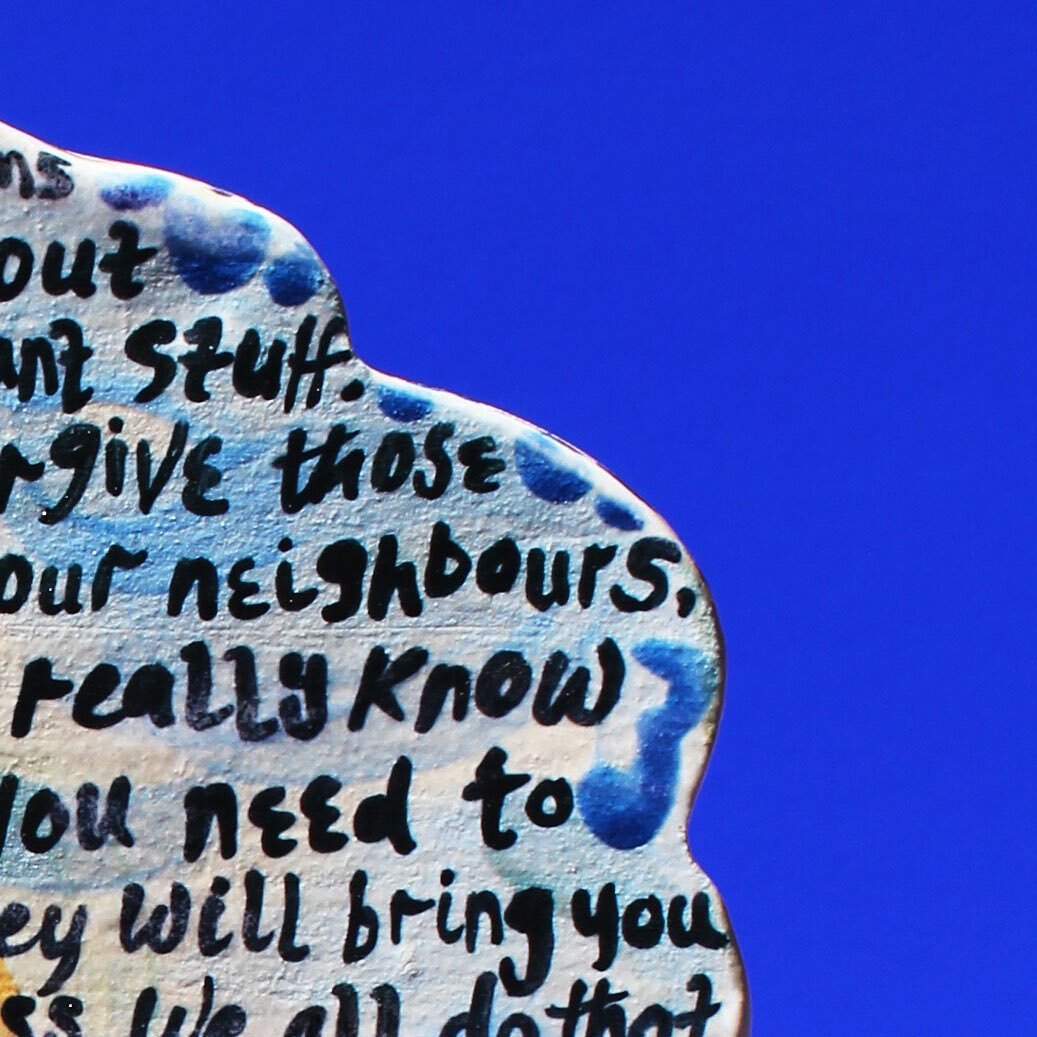 ns
out
ant stuff.
rgive those
our neighbours.
really know
you need to
ey will bring you
ss we all do that